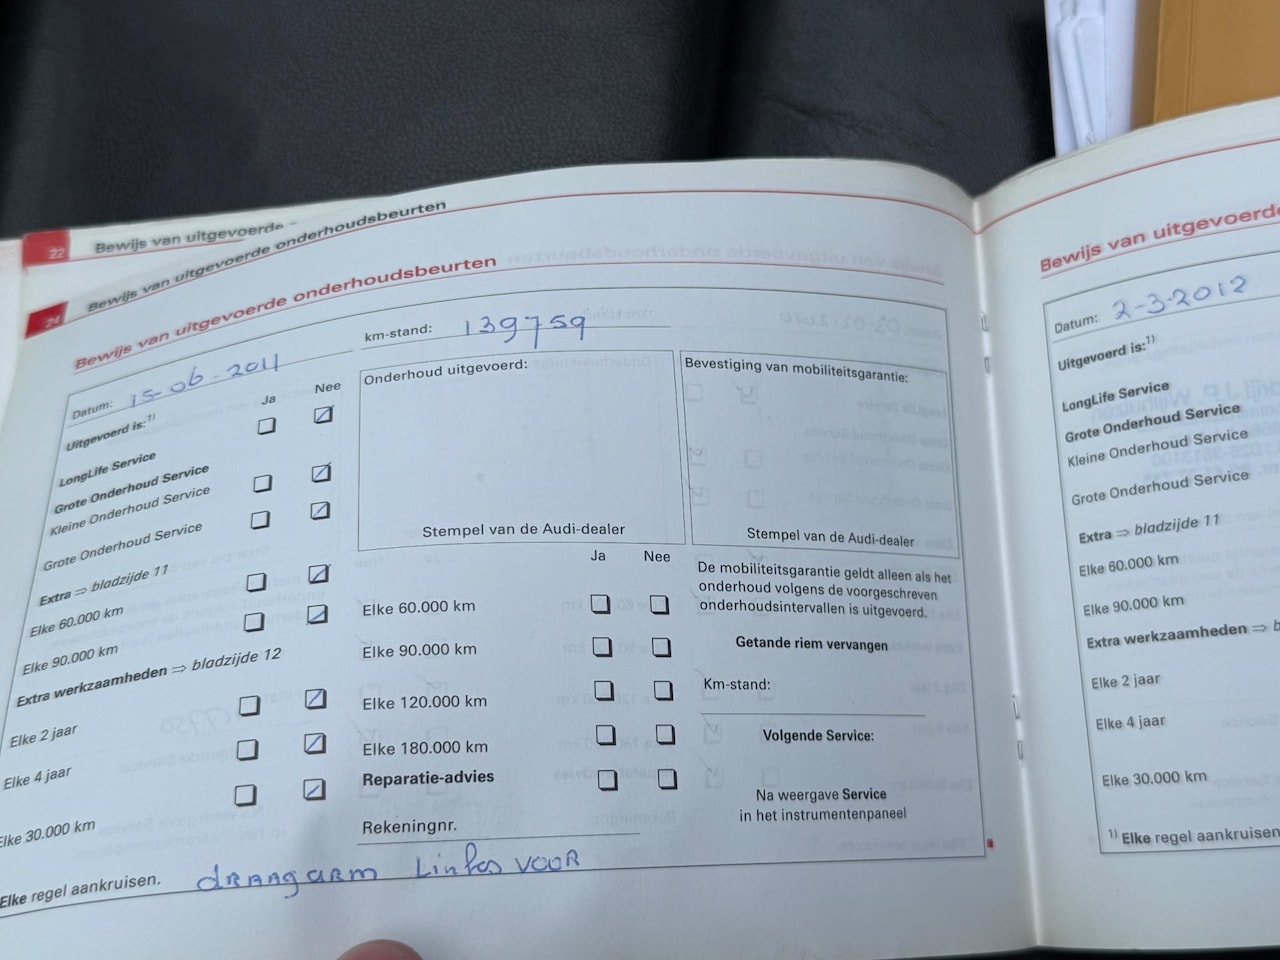 22 Bewijs van uitgevoerde
24 Bewijs van uitgevoerde onderhoudsbeurten
Bewijs van uitgevoerde onderhoudsbeurten
Datum: 15-06-2011
km-stand: 139759
Uitgevoerd is:1)
Ja Nee
LongLife Service
Grote Onderhoud Service
Kleine Onderhoud Service
Grote Onderhoud Service
Extra ⇒ bladzijde 11
Elke 60.000 km
Elke 90.000 km
Extra werkzaamheden ⇒ bladzijde 12
Elke 2 jaar
Elke 4 jaar
Elke 30.000 km
Elke regel aankruisen.
Onderhoud uitgevoerd:
Stempel van de Audi-dealer
Ja Nee
Elke 60.000 km
Elke 90.000 km
Elke 120.000 km
Elke 180.000 km
Reparatie-advies
Rekeningnr.
draagarm Links voor
Bevestiging van mobiliteitsgarantie:
Stempel van de Audi-dealer
De mobiliteitsgarantie geldt alleen als het
onderhoud volgens de voorgeschreven
onderhoudsintervallen is uitgevoerd.
Getande riem vervangen
Km-stand:
Volgende Service:
Na weergave Service
in het instrumentenpaneel
Bewijs van uitgevoerde
Datum: 2-3-2012
Uitgevoerd is:1)
LongLife Service
Grote Onderhoud Service
Kleine Onderhoud Service
Grote Onderhoud Service
Extra ⇒ bladzijde 11
Elke 60.000 km
Elke 90.000 km
Extra werkzaamheden ⇒ b
Elke 2 jaar
Elke 4 jaar
Elke 30.000 km
1) Elke regel aankruisen